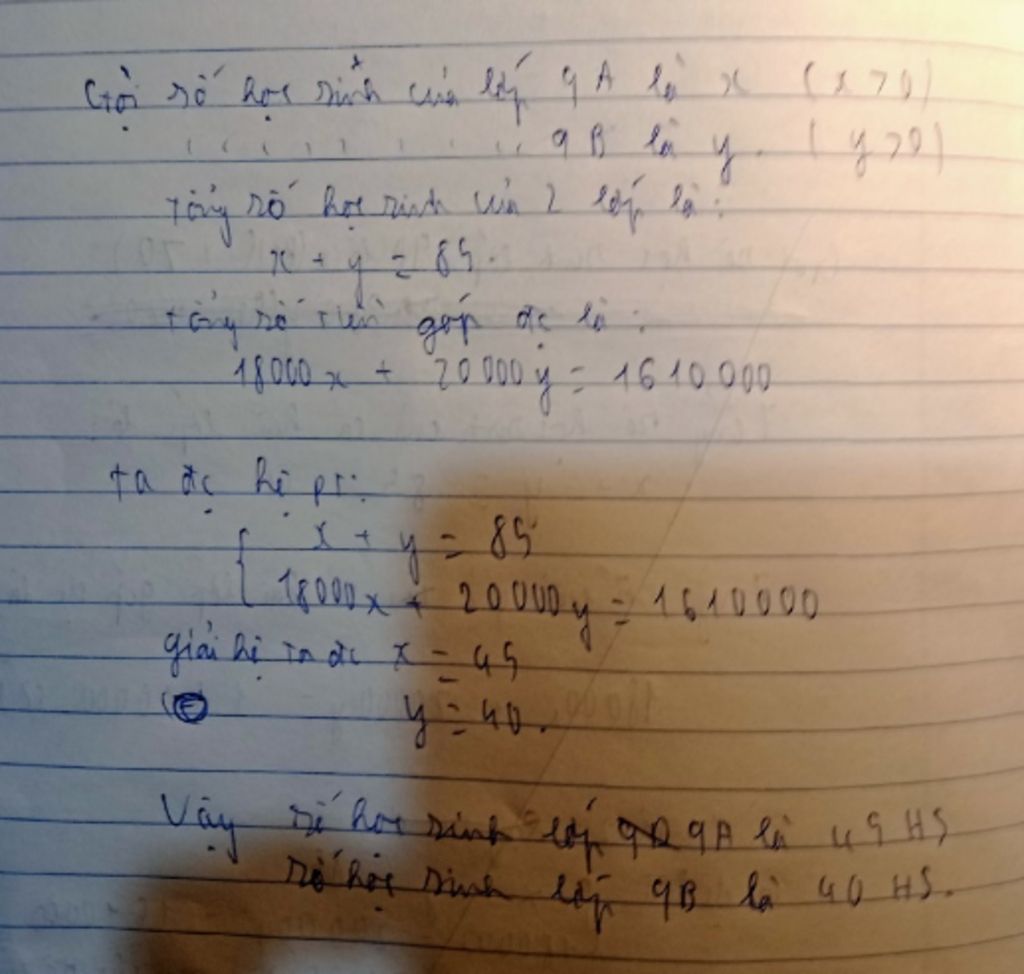 Gọi số học sinh của lớp 9A là x (x > 0)
9B là y. (y > 0)
Tổng số học sinh của 2 lớp là:
x + y = 85.
tổng số tiền góp đc là:
18000x + 20000y = 1610000
ta đc hệ pt:
x + y = 85
18000x + 20000y = 1610000
giải hệ ta đc x = 45
y = 40.
Vậy số học sinh lớp 9A là 45 HS
số học sinh lớp 9B là 40 HS.